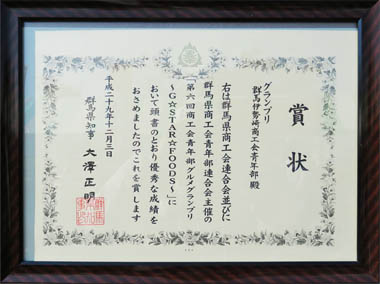 賞状
グランプリ
群馬伊勢崎商工会青年部 殿
右は群馬県商工会連合会並びに
群馬県商工会青年部連合会主催の
「第六回商工会青年部グルメグランプリ
～G☆STAR☆FOODS～」に
おいて頭書のとおり優秀な成績を
おさめましたのでこれを賞します
平成二十九年十二月三日
群馬県知事 大澤正明